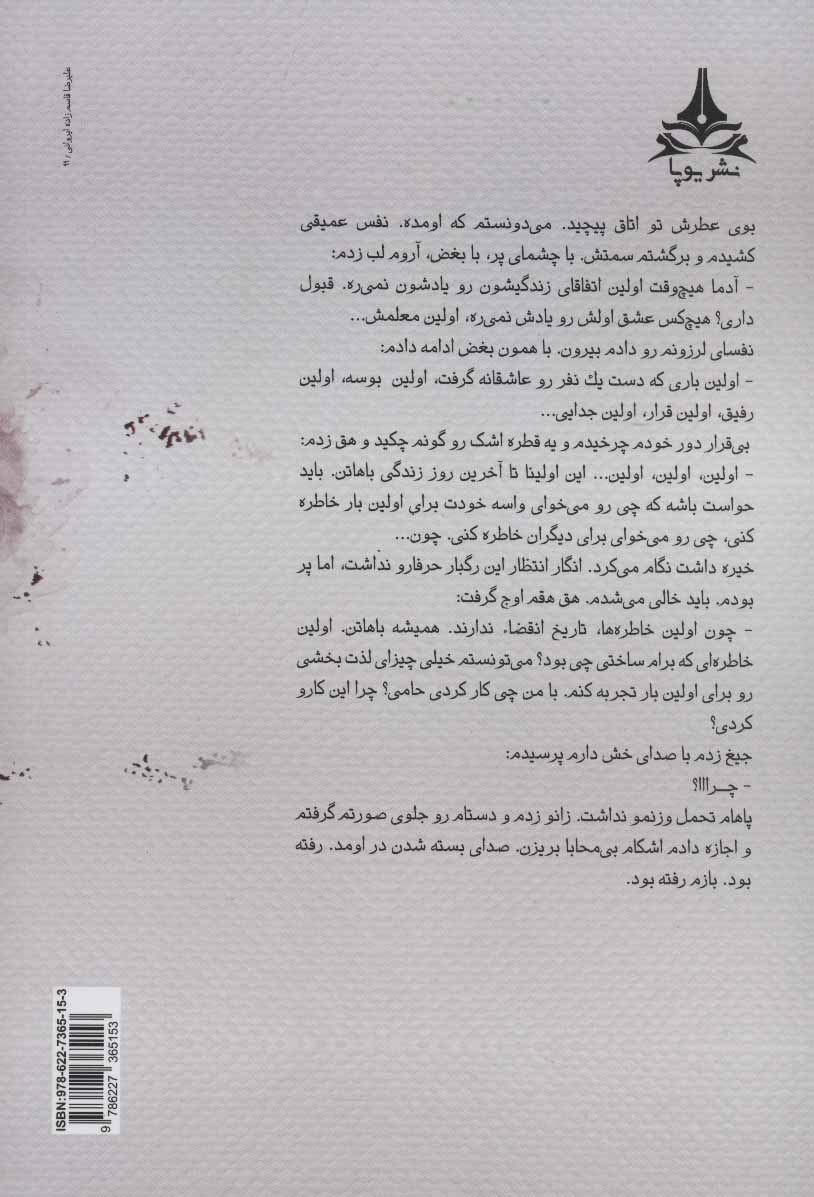 علیرضا قاسم زاده ایروانی / ۹۹
نشر یوپا
بوی عطرش تو اتاق پیچید. می‌دونستم که اومده. نفس عمیقی
کشیدم و برگشتم سمتش. با چشمای پر، با بغض، آروم لب زدم:
- آدما هیچ‌وقت اولین اتفاقای زندگیشون رو یادشون نمی‌ره. قبول
داری؟ هیچ‌کس عشق اولش رو یادش نمی‌ره، اولین معلمش...
نفسای لرزونم رو دادم بیرون. با همون بغض ادامه دادم:
- اولین باری که دست یك نفر رو عاشقانه گرفت، اولین بوسه، اولین
رفیق، اولین قرار، اولین جدایی...
بی‌قرار دور خودم چرخیدم و یه قطره اشک رو گونم چکید و هق زدم:
- اولین، اولین، اولین... این اولینا تا آخرین روز زندگی باهاتن. باید
حواست باشه که چی رو می‌خوای واسه خودت برایِ اولین بار خاطره
کنی، چی رو می‌خوای برای دیگران خاطره کنی. چون...
خیره داشت نگام می‌کرد. انگار انتظار این رگبار حرفارو نداشت، اما پر
بودم. باید خالی می‌شدم. هق هقم اوج گرفت:
- چون اولین خاطره‌ها، تاریخ انقضاء ندارند. همیشه باهاتن. اولین
خاطره‌ای که برام ساختی چی بود؟ می‌تونستم خیلی چیزای لذت بخشی
رو برای اولین بار تجربه کنم. با من چی کار کردی حامی؟ چرا این کارو
کردی؟
جیغ زدم با صدای خش دارم پرسیدم:
- چــرااا؟
پاهام تحمل وزنمو نداشت. زانو زدم و دستام رو جلوی صورتم گرفتم
و اجازه دادم اشکام بی‌محابا بریزن. صدای بسته شدن در اومد. رفته
بود. بازم رفته بود.
ISBN:978-622-7365-15-3
9 786227 365153